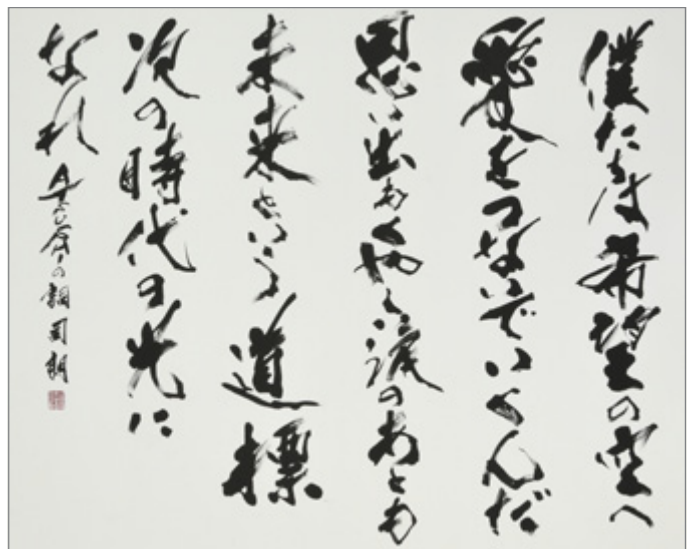 僕たちは希望の空へ
愛をつないでいくんだ
思い出もくやし涙のあとも
未来という道標
次の時代の光に
なれ の詞 司朗